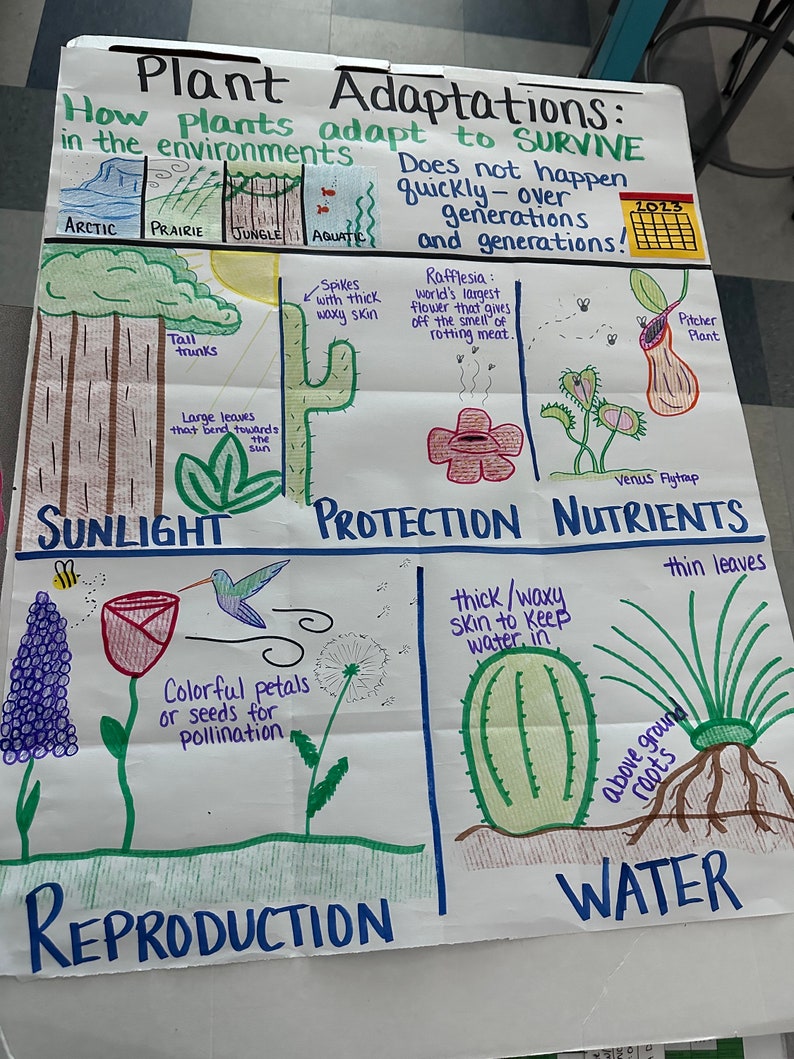 Plant Adaptations:
How plants adapt to SURVIVE
in the environments
ARCTIC
PRAIRIE
JUNGLE
AQUATIC
Does not happen
quickly – over
generations
and generations!
2023
Tall
trunks
Large leaves
that bend towards
the
sun
SUNLIGHT
Spikes
with thick
waxy skin
Rafflesia:
world's largest
flower that gives
off the smell of
rotting meat.
PROTECTION
Pitcher
Plant
Venus Flytrap
NUTRIENTS
Colorful petals
or seeds for
pollination
REPRODUCTION
thick/waxy
skin to keep
water in
thin leaves
above ground
roots
WATER